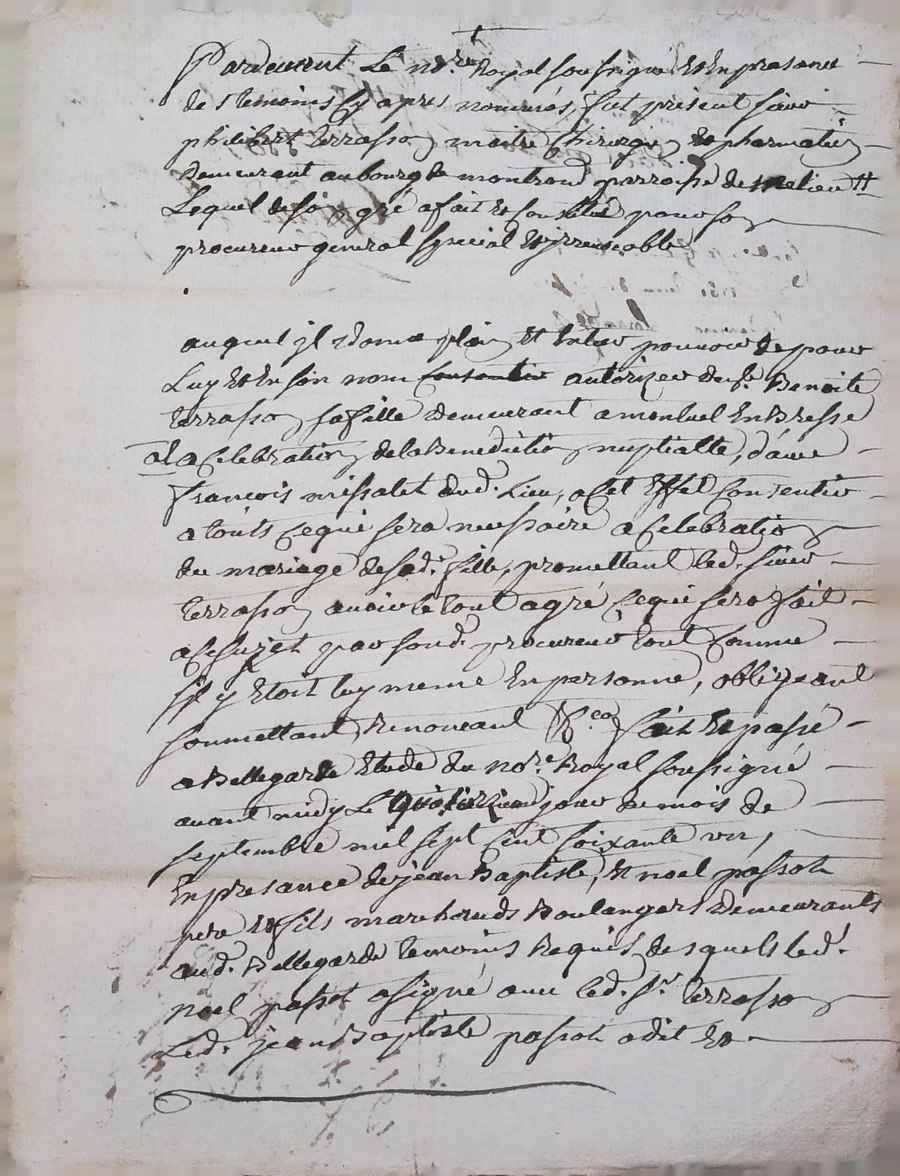 Pardevant Le no.re Royal soussigné Et En presance
de stemoins Cy apres nommés, fut présent sieur
philibert Terrasson maitre Chirurgien Et pharmatien
demeurant au bourg de montrond parroisse de meslieu
Lequel de son gré a fait Et Constitué pour son
procureur general special Et jrrevocable
auquel jl donne plain Et Entier pouvoir de pour
Luy Et En son nom consentir autorizer de Benoite
Terrasson sa fille demeurant a montluel En Bresse
a La Celebration de la Benediction nuptialle, d'avec
françois missalet dud. Lieu, a Cet Effet Consentir
a touts Ce qui sera necessaire a Celebration
du mariage de sad. fille, promettant led. sieur
Terrasson avoir le tout agré Ce qui sera fait
a Ce sujet par sond. procureur tout Comme
s'il y Etoit luy meme En personne, obligeant
soumettant, Renonceant &ca fait Et passé
a Bellegarde Etude du no.re Royal soussigné
avant midy Le quatorzieme jour du mois de
septembre mil sept Cent soixante un,
En presance de jean Baptiste, Et noel passot
pere Et fils marchands Boulangers demeurants
aud. Bellegarde temoins Requis desquels led.
noel passot a signé avec led. Sr. Terrasson
Led. jean Baptiste passot a dit Et